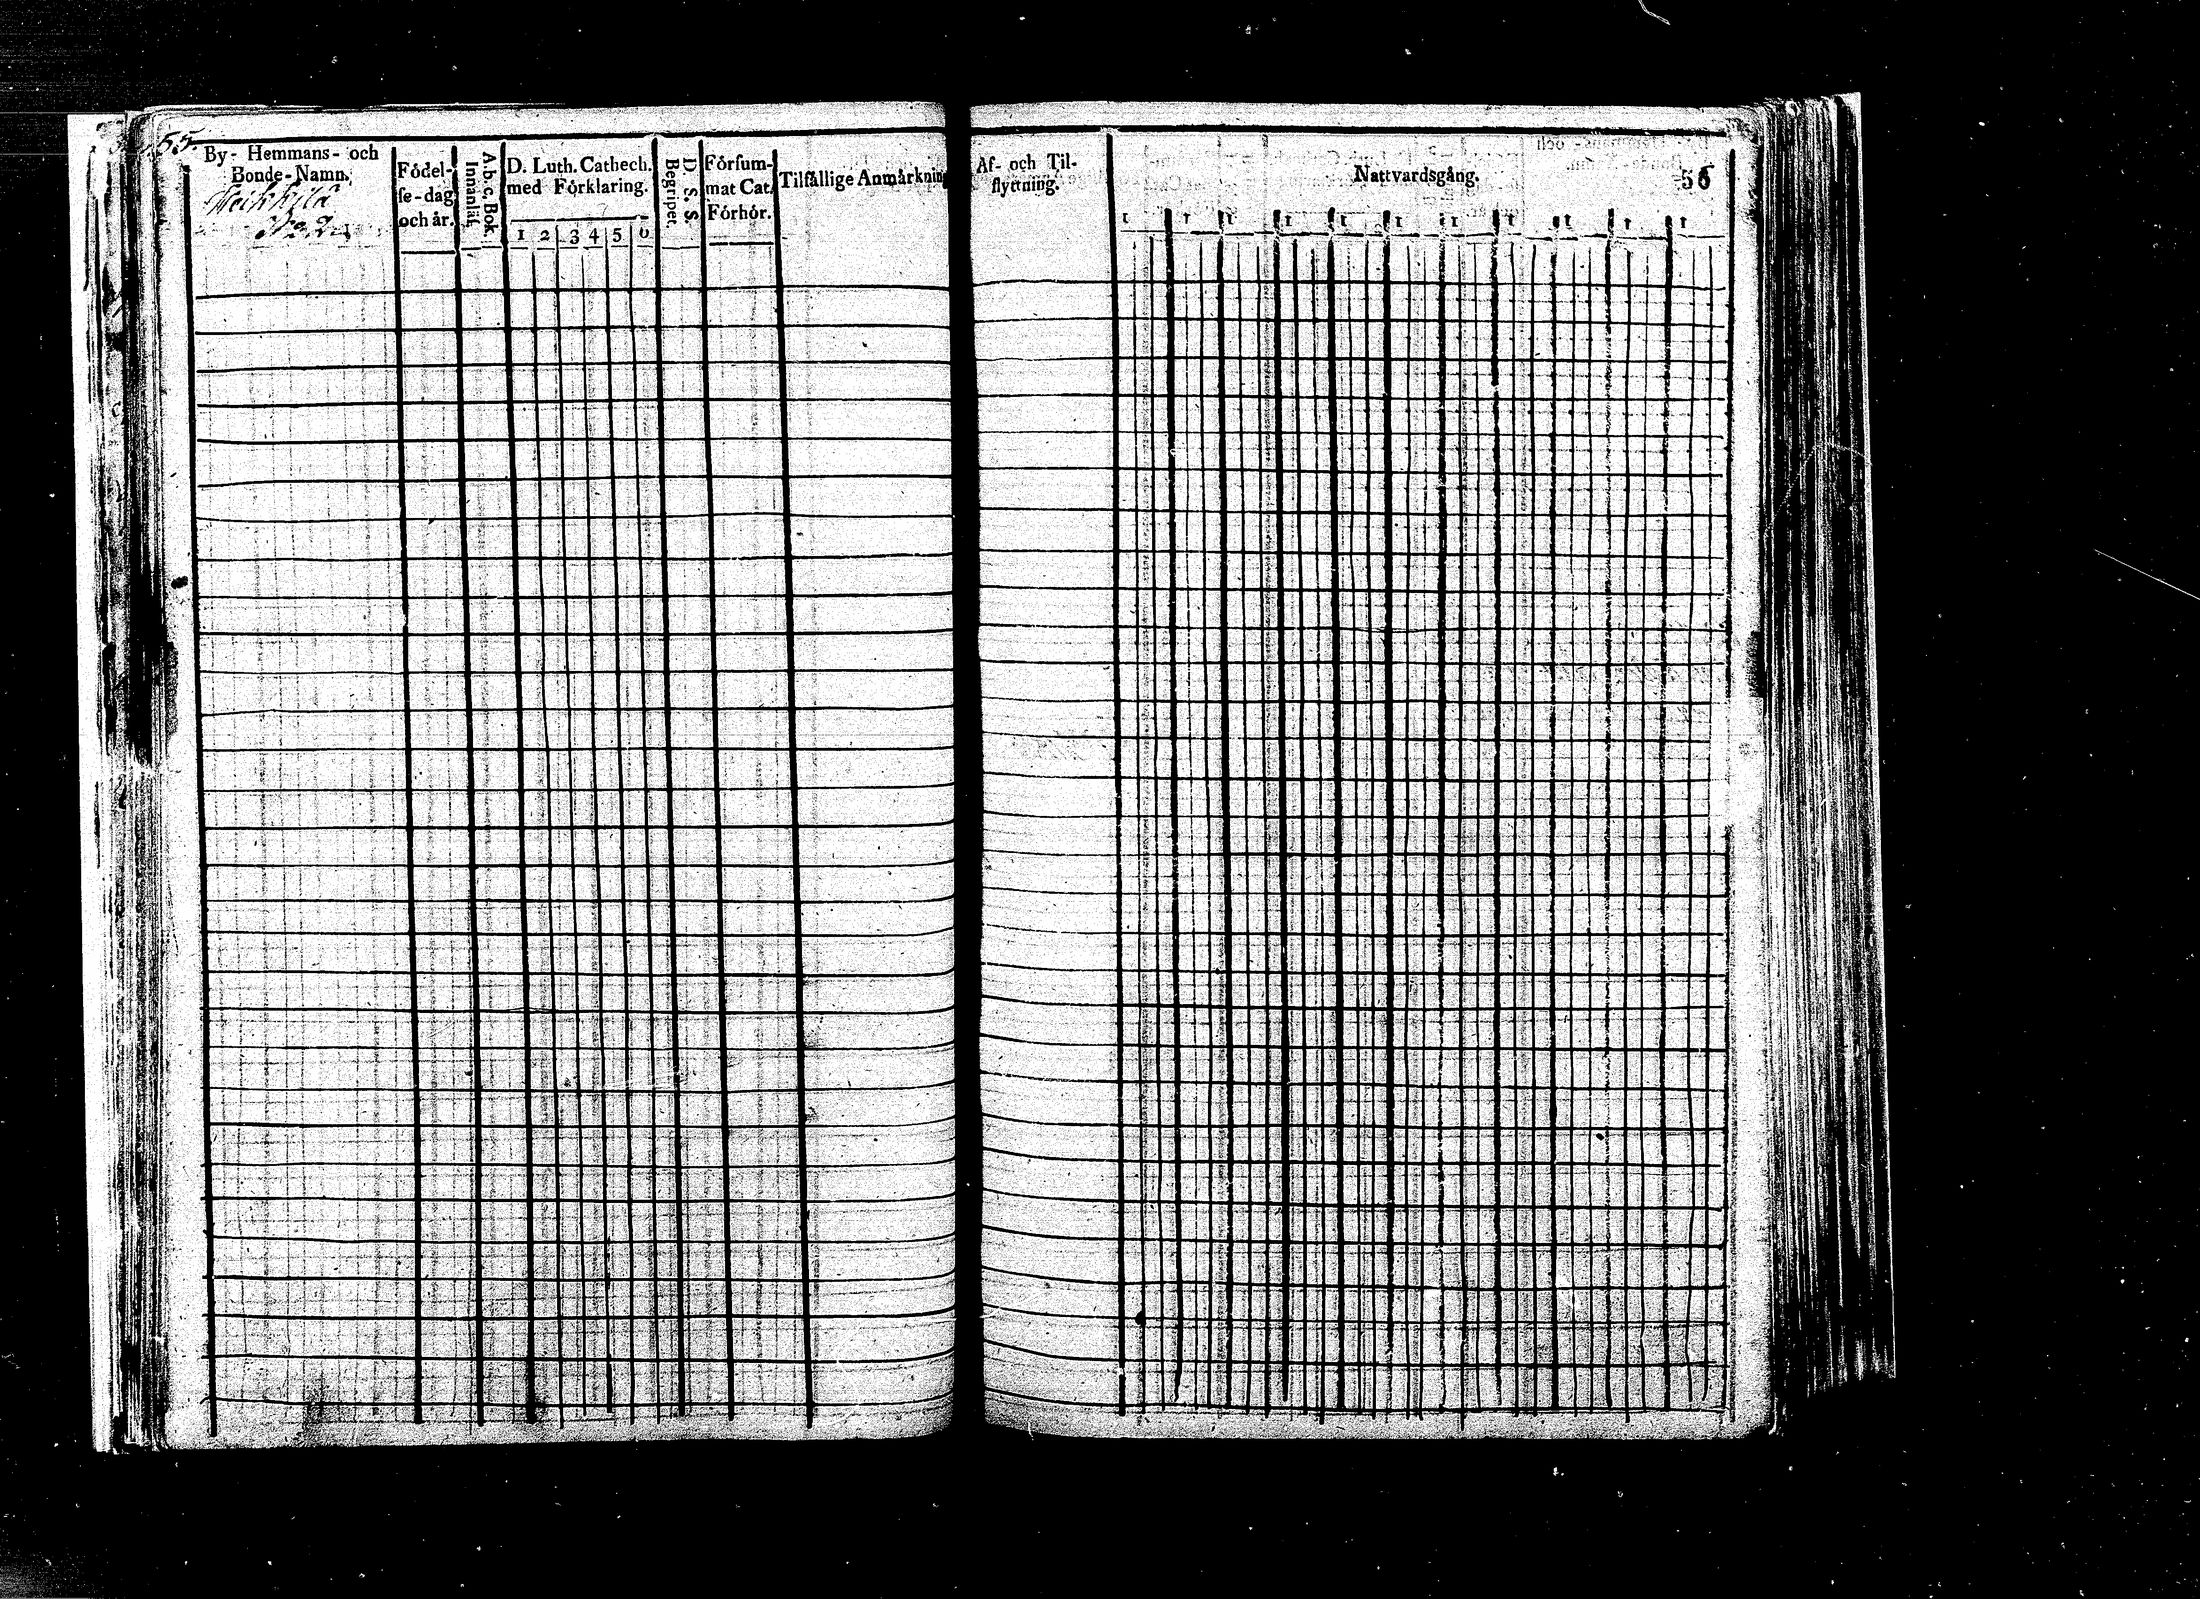 55.
By- Hemmans- och
Bonde-Namn.
Heikkilä
No 2.
Födel-
se-dag
och år.
A.b.c, Bok.
Innanläs.
D. Luth. Cathech.
med Förklaring.
1 2 3 4 5 6
D. S. S.
Begriper.
Försum-
mat Cat.
Förhör.
Tilfällige Anmärkning
Af- och Til-
flyttning.
Nattvardsgång.
56
1 1 1 1 1 1 1 1 1 1 1